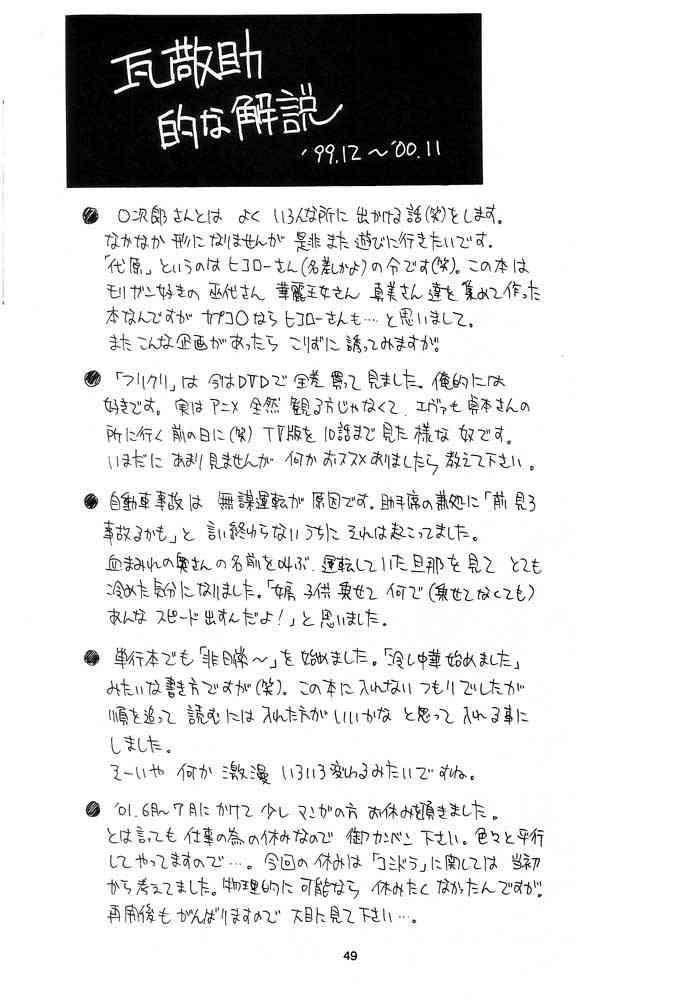 瓦敬助
的な解説
'99.12～'00.11
● ○次郎さんとは よく いろんな所に 出かける話(笑)をします。
なかなか 形になりませんが 是非 また 遊びに行きたいです。
「代原」というのは ヒヨローさん(名差しかよ)の令です(笑)。この本は
モリガン好きの 巫代さん 華麗王女さん 真美さん達を 集めて作った
本なんですが カプコ○なら ヒヨローさんも…と思いまして。
また こんな 企画があったら こりずに 誘ってみますが。
● 「フリクリ」は 今はDVDで 全巻 買って 見ました。俺的には
好きです。実は アニメ 全然 観る方じゃなくて、エヴァも 貞本さんの
所に行く 前の日に(笑) TV版を 10話まで 見た 様な 奴です。
いまだに あまり見ませんが 何か おススメ ありましたら 教えて下さい。
● 自動車事故は 無謀運転が 原因です。助手席の 「前 見ろ
事故るかも」と 言い終わらない うちに それは起こってました。
血まみれの奥さんの 名前を 叫ぶ、運転していた旦那を 見て とても
冷めた気分に なりました。「嫁 子供 乗せて 何で(乗せてなくても)
あんな スピード 出すんだよ!」と 思いました。
● 単行本でも「非日常～」を 始めました。「冷し中華 始めました」
みたいな書き方ですが(笑)。この本に入れない つもりでしたが
順を追って 読むには 入れた方が いいかな と思って 入れる事に
しました。
そーいや 何か 激漫 いろいろ変わるみたいですね。
● '01.6月～7月にかけて 少し マンガの方 お休みを頂きました。
とは言っても 仕事の為の休みなので 御カンベン 下さい。色々と平行
してやってますので…。今回の休みは「コミドラ」に関しては 当初
から考えてました。物理的に 可能なら 休みたく なかったんですが。
再開後も がんばりますので 大目に見て 下さい…。
49